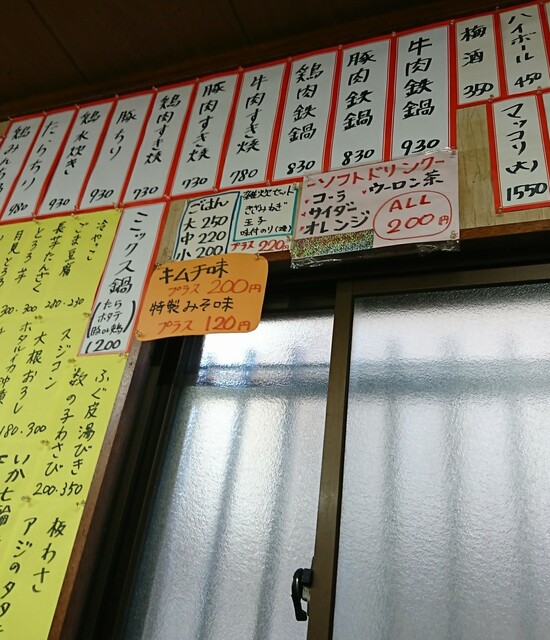 ハイボール 450
梅酒 350
マッコリ(大) 1550
牛肉鉄鍋 930
豚肉鉄鍋 830
鶏肉鉄鍋 830
牛肉すき焼 780
豚肉すき焼 930
鶏肉すき焼 730
豚ちり 930
鶏水炊き 930
たらちり 930
480
ソフトドリンク
コーラ
サイダー
オレンジ
ウーロン茶
ALL
200円
雑炊セット
きざみねぎ
玉子
味付のり(塩)
プラス 220円
ごはん
大 250
中 220
小 200
キムチ味
プラス 200円
特製みそ味
プラス 120円
ミックス鍋
たら
ホタテ
豚or鶏
1200
冷やっこ
ごま豆腐
長芋たんざく
とろろ芋
月見とろろ
スジコン
大根おろし
ふぐ皮湯びき
数の子わさび
200.350
180.300
板わさ
アジのタタ